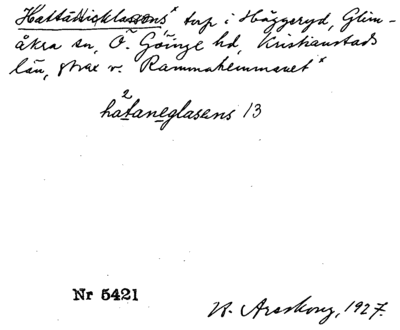 Hattåsicklassens* torp i Häggeryd, Glim-
åkra sn, Ö. Göinge hd, Kristianstads
län, strax v. Rammahemmanet*
2
hàtaneglasens 13
Nr 5421
H. Areskoug, 1927.